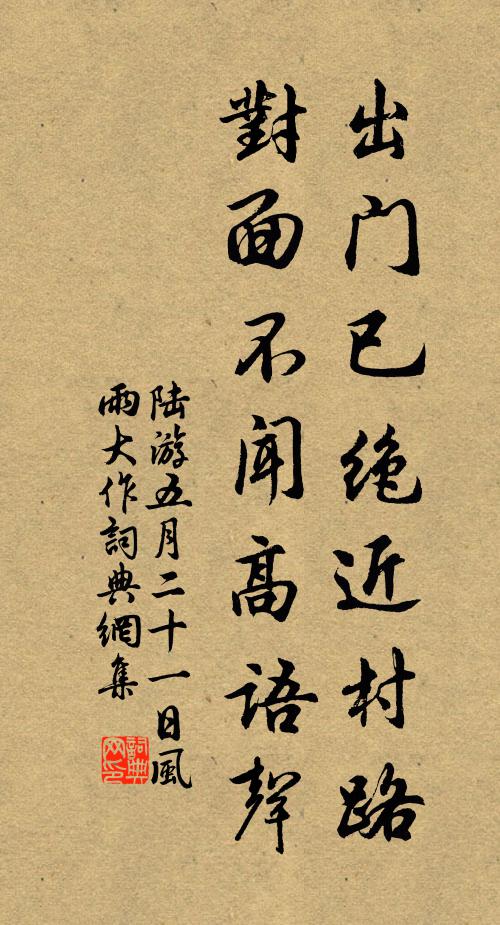 出门已绝近村路
對面不闻高语聲
陆游五月二十一日風
雨大作詞典網集
詞典
网印